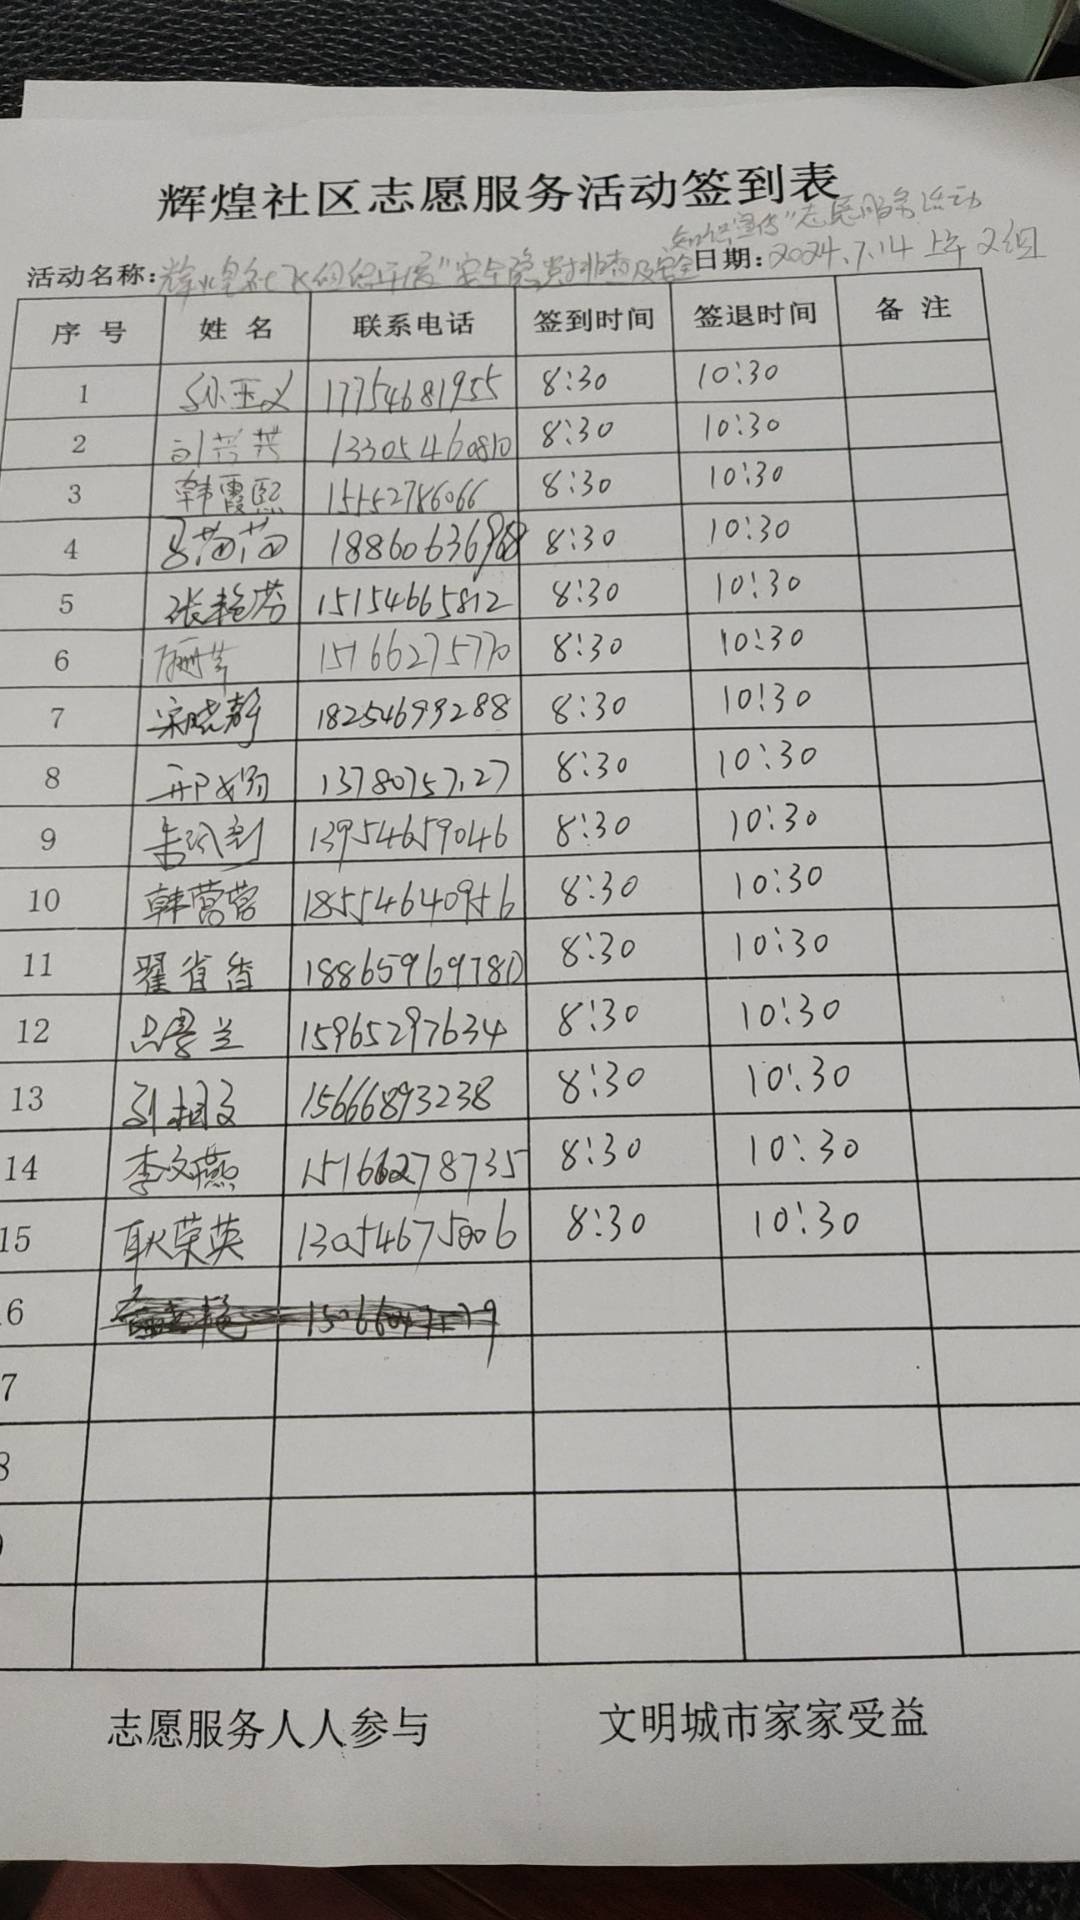 辉煌社区志愿服务活动签到表
知识宣传"志愿服务活动
活动名称:辉煌社区 开展"安全隐患排查及安全 日期:2024.7.14 上午 2组
序号 姓名 联系电话 签到时间 签退时间 备注
1 孙玉义 17754681955 8:30 10:30
2 刘芳芳 13305460810 8:30 10:30
3 韩霞熙 15152786066 8:30 10:30
4 马苗苗 188606369 8:30 10:30
5 张艳芬 15154665812 8:30 10:30
6 15166275770 8:30 10:30
7 宋晓静 18254699288 8:30 10:30
8 邢 8:30 10:30
9 13954659046 8:30 10:30
10 韩营营 18554640956 8:30 10:30
11 翟省香 18865969780 8:30 10:30
12 吕 兰 15965297634 8:30 10:30
13 刘相文 15666893238 8:30 10:30
14 李文燕 15166278735 8:30 10:30
15 耿荣英 13054675006 8:30 10:30
6
7
8
志愿服务人人参与 文明城市家家受益